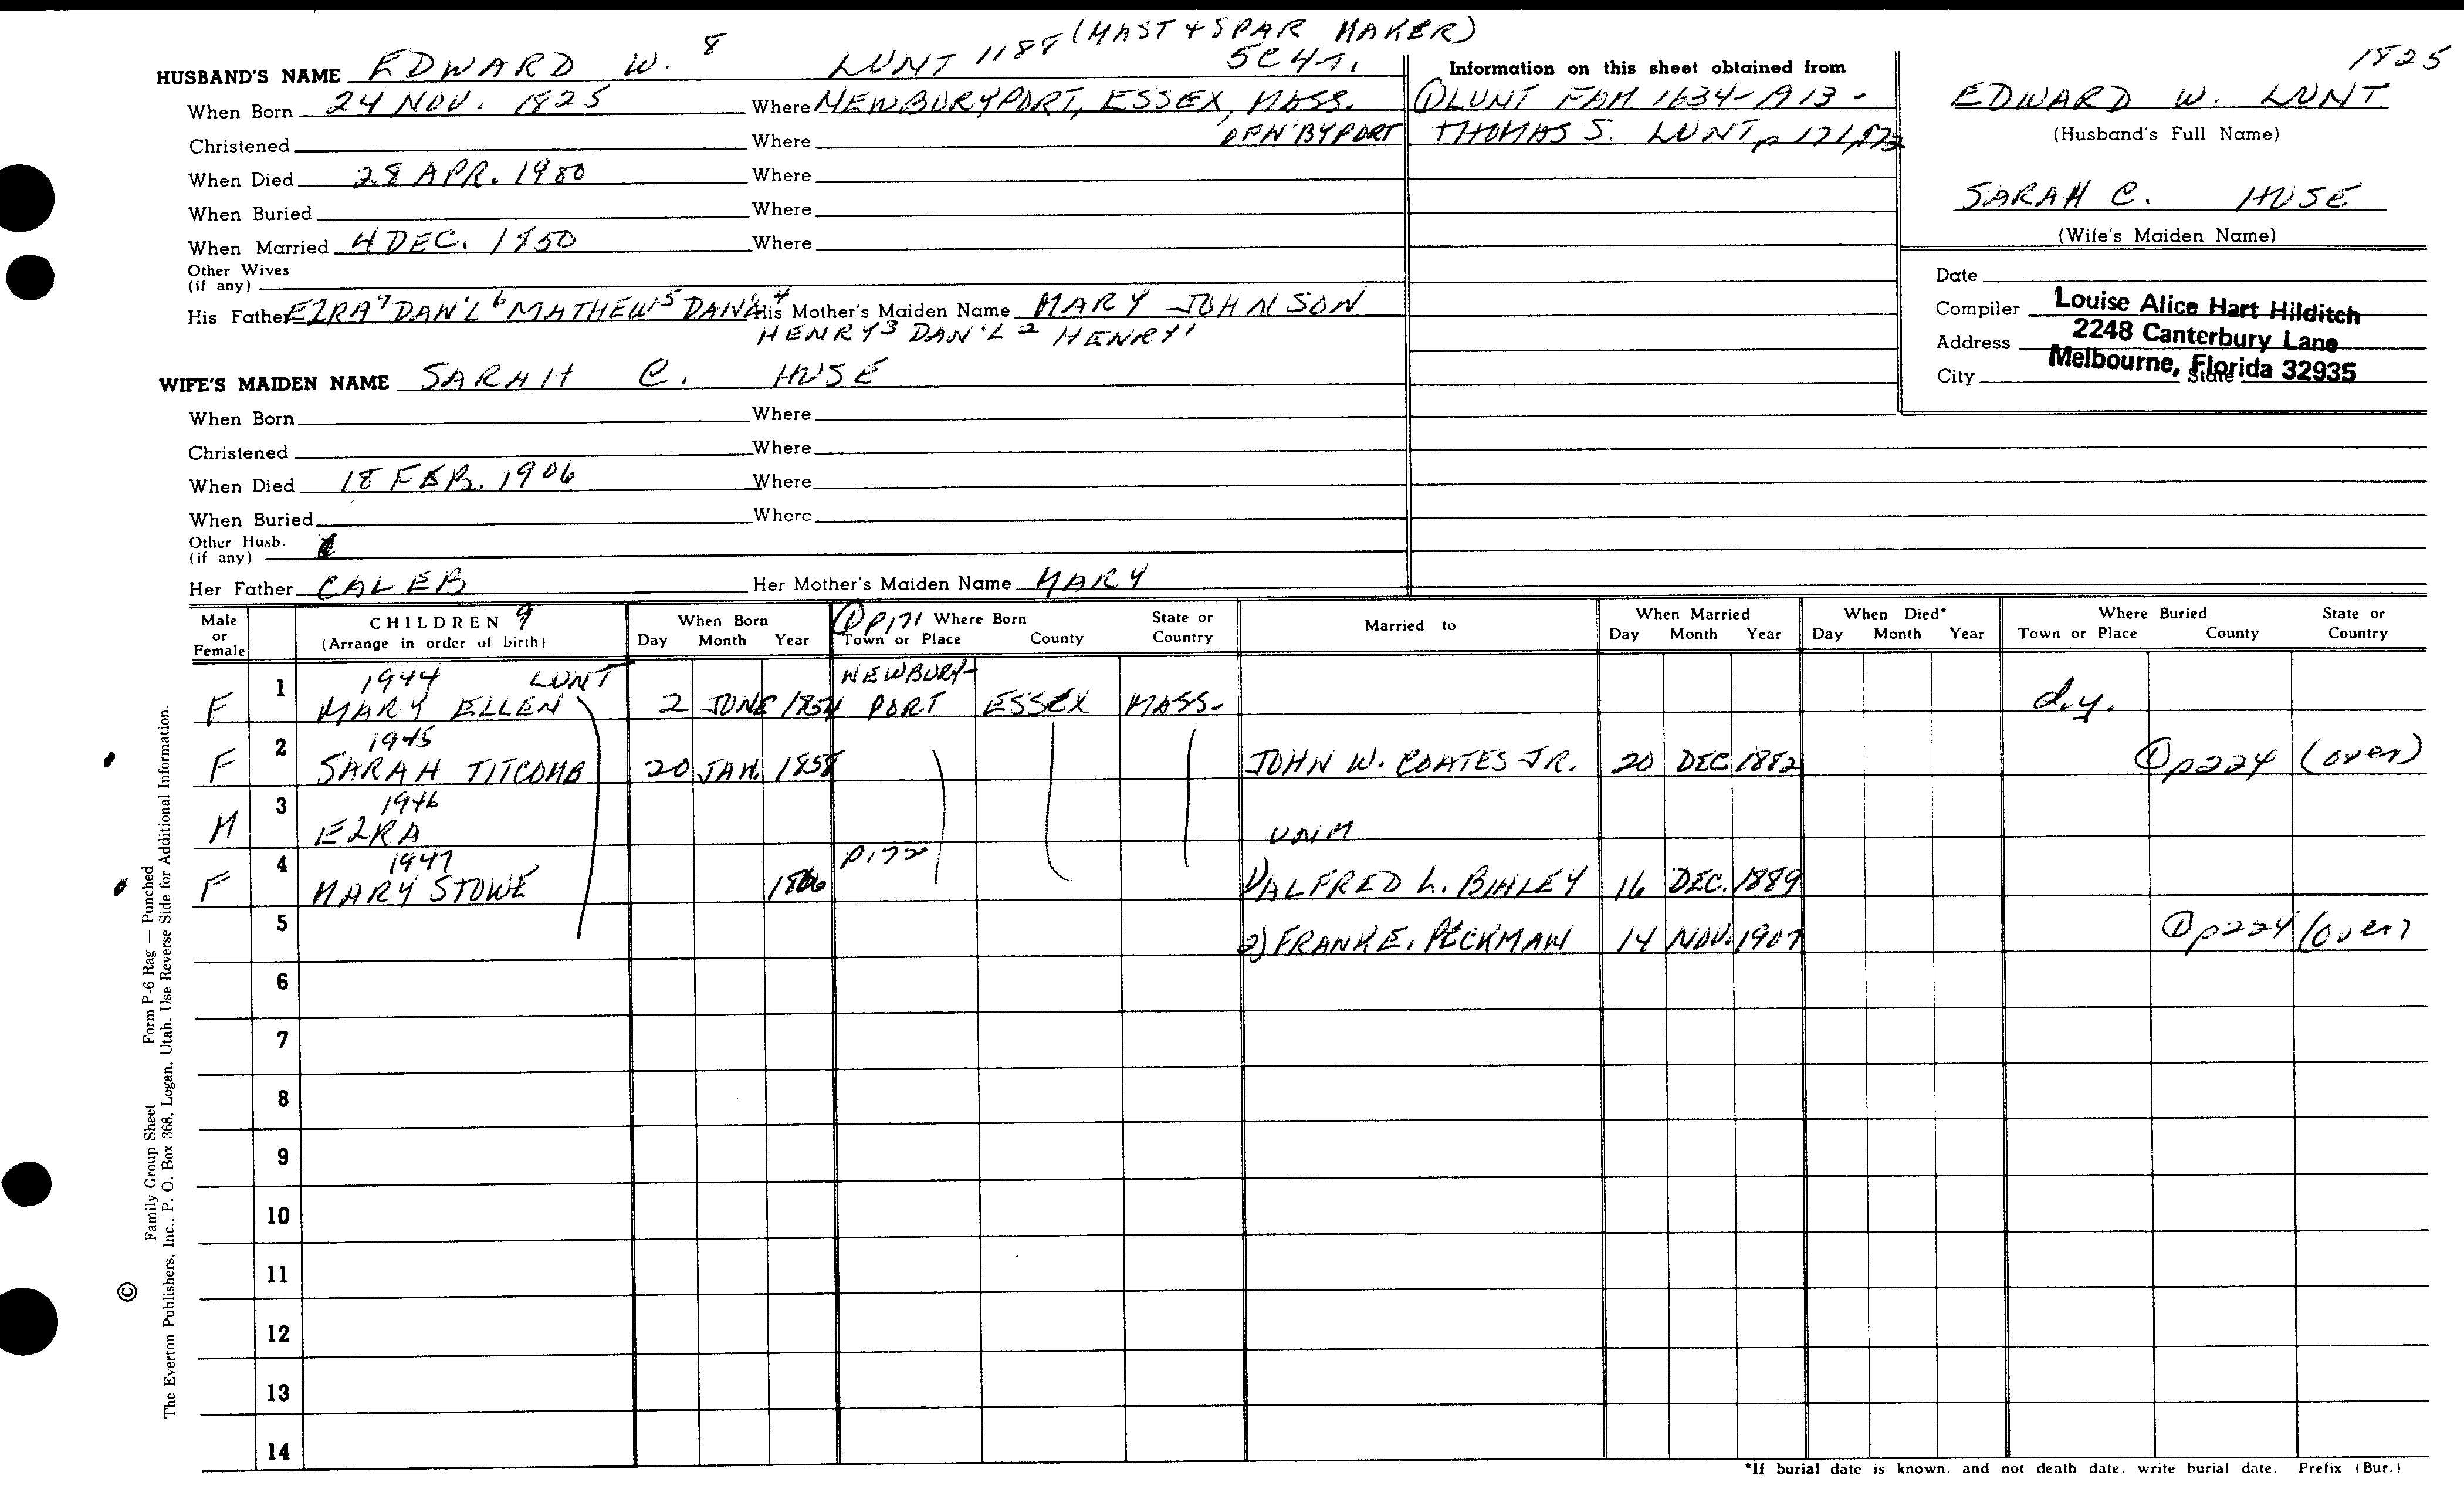 (MAST + SPAR MAKER)
HUSBAND'S NAME EDWARD W. 8 LUNT 1188 5C47.
Information on this sheet obtained from
1825
When Born 24 NOV. 1825 Where NEWBURYPORT, ESSEX, MASS.
① LUNT FAM 1634-1913 -
EDWARD W. LUNT
(Husband's Full Name)
Christened Where OF N'BYPORT
THOMAS S. LUNT, p 171, 172
When Died 28 APR. 1980 Where
When Buried Where
SARAH C. HUSE
(Wife's Maiden Name)
When Married 4 DEC. 1850 Where
Other Wives
(if any)
Date
His Father EZRA 7 DAN'L 6 MATHEW 5 DAN'L 4 His Mother's Maiden Name MARY JOHNSON
HENRY 3 DAN'L 2 HENRY 1
Compiler Louise Alice Hart Hilditch
Address 2248 Canterbury Lane
City Melbourne, Florida 32935 State
WIFE'S MAIDEN NAME SARAH C. HUSE
When Born Where
Christened Where
When Died 18 FEB. 1906 Where
When Buried Where
Other Husb.
(if any)
Her Father CALEB Her Mother's Maiden Name MARY
Male or Female
CHILDREN 9
(Arrange in order of birth)
When Born
Day Month Year
① P171 Where Born
Town or Place County State or Country
Married to
When Married
Day Month Year
When Died*
Day Month Year
Where Buried
Town or Place County State or Country
1944 LUNT NEWBURY-
F 1 MARY ELLEN 2 JUNE 1854 PORT ESSEX MASS. d.y.
1945
F 2 SARAH TITCOMB 20 JAN. 1858 JOHN W. COATES JR. 20 DEC 1882 ① p224 (over)
1946
M 3 EZRA UNM
1947 P172
F 4 MARY STOWE 1866 1) ALFRED L. BINLEY 16 DEC. 1889
5 2) FRANK E. PECKMAN 14 NOV. 1907 ① p224 (over)
6
7
8
9
10
11
12
13
14
*If burial date is known, and not death date, write burial date. Prefix (Bur.)
© Family Group Sheet Form P-6 Rag — Punched
The Everton Publishers, Inc., P. O. Box 368, Logan, Utah. Use Reverse Side for Additional Information.